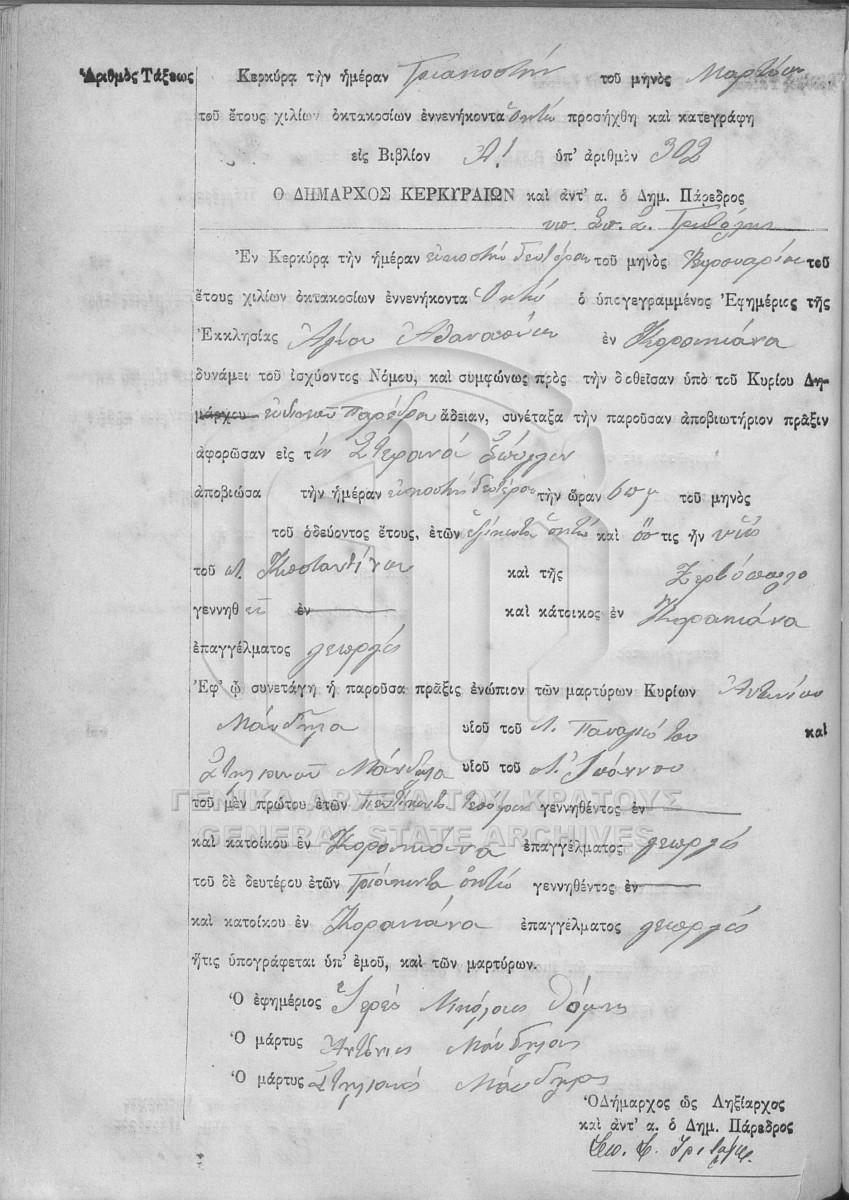 Ἀριθμὸς Τάξεως
Κερκύρᾳ τὴν ἡμέραν Τριακοστὴν τοῦ μηνὸς Μαρτίου
τοῦ ἔτους χιλίων ὀκτακοσίων ἐννενήκοντα ὀκτώ προσήχθη καὶ κατεγράφη
εἰς Βιβλίον Α! ὑπ' ἀριθμὸν 302
Ο ΔΗΜΑΡΧΟΣ ΚΕΡΚΥΡΑΙΩΝ καὶ ἀντ' α. ὁ Δημ. Πάρεδρος
Σπ. Σ.
Ἐν Κερκύρᾳ τὴν ἡμέραν εἰκοστὴν δευτέραν τοῦ μηνὸς Φεβρουαρίου τοῦ
ἔτους χιλίων ὀκτακοσίων ἐννενήκοντα ὀκτώ ὁ ὑπογεγραμμένος Ἐφημέριος τῆς
Ἐκκλησίας Ἁγίου Ἀθανασίου ἐν Κορακιάνα
δυνάμει τοῦ ἰσχύοντος Νόμου, καὶ συμφώνως πρὸς τὴν δοθεῖσαν ὑπὸ τοῦ Κυρίου Δη-
μάρχου εἰδικοῦ Παρέδρου ἄδειαν, συνέταξα τὴν παροῦσαν ἀποβιωτήριον πρᾶξιν
ἀφορῶσαν εἰς τόν Στεφανό
ἀποβιώσα τὴν ἡμέραν εἰκοστὴν δευτέραν τὴν ὥραν 6 π μ τοῦ μηνὸς
τοῦ ὁδεύοντος ἔτους, ἐτῶν ἑξήκοντα ὀκτώ καὶ ὅστις ἦν υἱός
τοῦ π. Κωσταντίνου καὶ τῆς
γεννηθ ἐν καὶ κάτοικος ἐν Κορακιάνα
ἐπαγγέλματος γεωργός
Ἐφ' ᾧ συνετάγη ἡ παροῦσα πρᾶξις ἐνώπιον τῶν μαρτύρων Κυρίων Ἀντωνίου
Μάνδηλα υἱοῦ τοῦ π. Παναγιότου καὶ
Στηλιανοῦ Μάνδηλα υἱοῦ τοῦ π. Ἰωάννου
ΓΕΝΙΚΑ ΑΡΧΕΙΑ ΤΟΥ ΚΡΑΤΟΥΣ
τοῦ μὲν πρώτου ἐτῶν πεντήκοντα τεσσάρων γεννηθέντος ἐν
GENERAL STATE ARCHIVES
καὶ κατοίκου ἐν Κορακιάνα ἐπαγγέλματος γεωργός
τοῦ δὲ δευτέρου ἐτῶν τριάκοντα ὀκτώ γεννηθέντος ἐν
καὶ κατοίκου ἐν Κορακιάνα ἐπαγγέλματος γεωργός
ἥτις ὑπογράφεται ὑπ' ἐμοῦ, καὶ τῶν μαρτύρων.
Ὁ ἐφημέριος Ἱερεύς Νικόλαος
Ὁ μάρτυς Ἀντώνιος Μάνδηλας
Ὁ μάρτυς Στηλιανός Μάνδηλας
Ὁ Δήμαρχος ὡς Ληξίαρχος
καὶ ἀντ' α. ὁ Δημ. Πάρεδρος
Σπ. Σ.